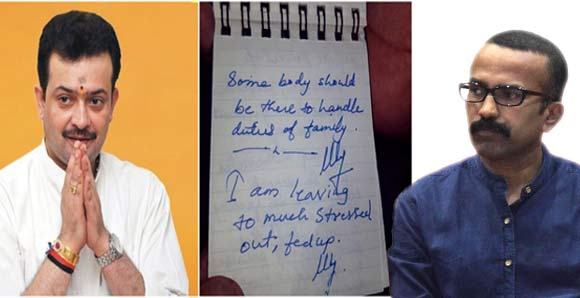 Some body should
be there to handle
duties of family.
I am leaving
to much stressed
out, fed up.